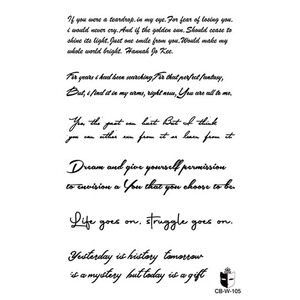 If you were a teardrop,in my eye,For fear of losing you,
i would never cry.And if the golden sun,Should cease to
shine its light,Just one smile from you,Would make my
whole world bright. Hannah Jo Kee.
For years i had been searching,For that perfect fantasy,
But, i find it in my arms, right now, You are all to me.
Yes, the past can hurt But I think
you can either run from it or learn from it
Dream and give yourself permission
to envision a You that you choose to be
Life goes on, struggle goes on.
Yesterday is history tomorrow
is a mystery but today is a gift
CB-W-105